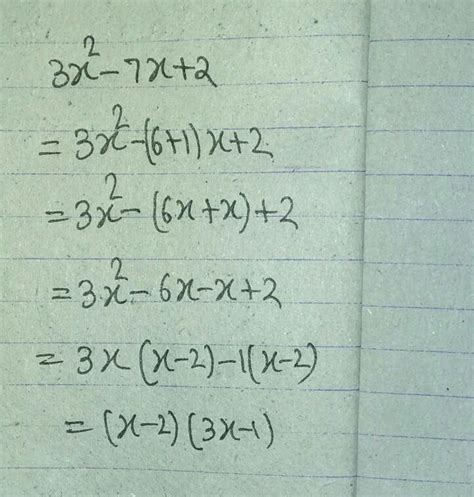 3x²-7x+2
=3x²-(6+1)x+2
=3x²-(6x+x)+2
=3x²-6x-x+2
=3x(x-2)-1(x-2)
=(x-2)(3x-1)